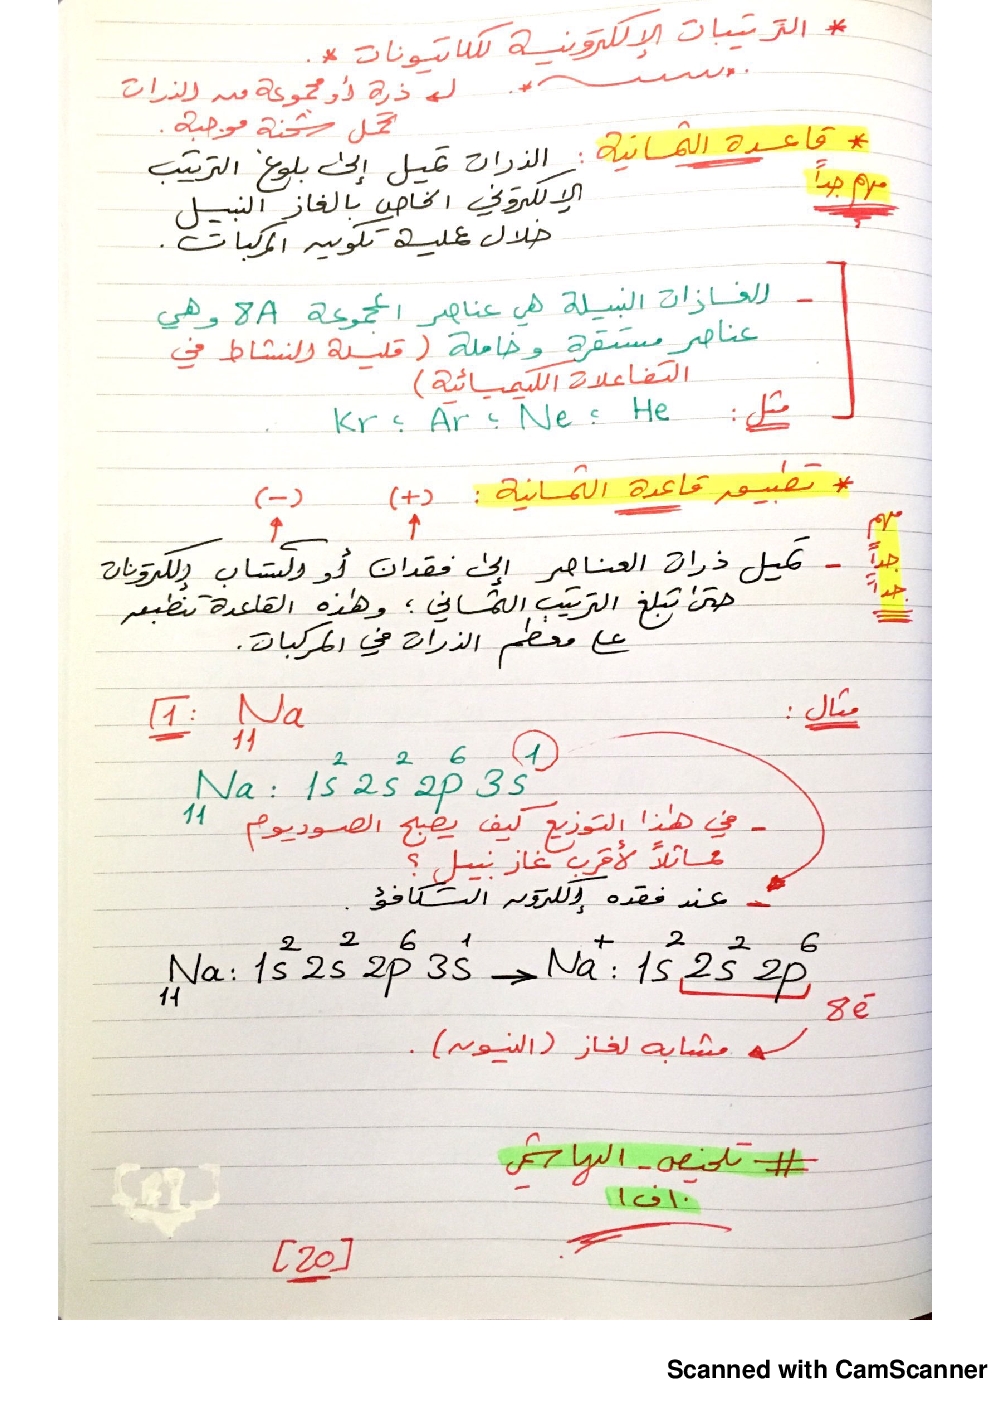 * الترتيبات الإلكترونية للكاتيونات *
ذرة أو مجموعة من الذرات
تحمل شحنة موجبة.
* قاعدة الثمانية : الذرات تميل إلى بلوغ الترتيب
مهم جداً
الإلكتروني الخاص بالغاز النبيل
خلال عملية تكوين المركبات.
- الغازات النبيلة هي عناصر المجموعة 8A وهي
عناصر مستقرة وخاملة (قليلة النشاط في
التفاعلات الكيميائية)
مثل : He ؛ Ne ؛ Ar ؛ Kr
* تطبيق قاعدة الثمانية :
(+) (-)
مهم جداً جداً
- تميل ذرات العناصر إلى فقدان أو اكتساب إلكترونات
حتى تبلغ الترتيب الثماني ؛ وهذه القاعدة تنطبق
على معظم الذرات في المركبات.
مثال :
1 : ₁₁Na
₁₁Na : 1s² 2s² 2p⁶ 3s¹
- في هذا التوزيع كيف يصبح الصوديوم
مماثلاً لأقرب غاز نبيل ؟
- عند فقده إلكترون التكافؤ .
₁₁Na : 1s² 2s² 2p⁶ 3s¹ → Na⁺ : 1s² 2s² 2p⁶
8ē
مشابه لغاز (النيون) .
# تلخيص - الهاشمي
١٠ ف١
[20]
Scanned with CamScanner